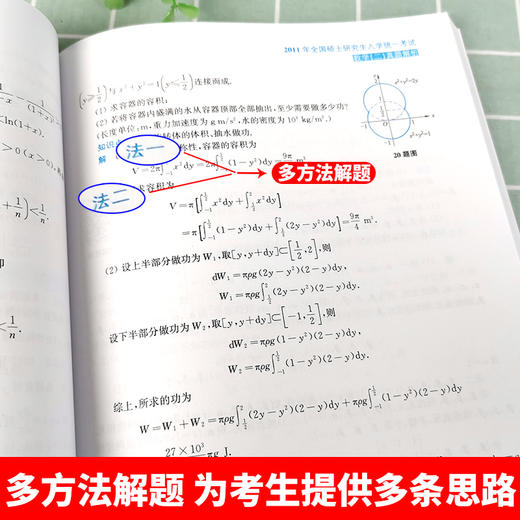 2011 年全国硕士研究生入学统一考试
数学(二)真题解析
(y≥1/2)与 x²+y²=1(y≤1/2)连接而成.
(1) 求容器的容积;
(2) 若将容器内盛满的水从容器顶部全部抽出,至少需要做多少功?
(长度单位:m,重力加速度为 g m/s²,水的密度为 10³ kg/m³.)
转体的体积,抽水做功.
解
法一
称性,容器的容积为
V=2π∫_{-1}^{1/2} x²dy=2π∫_{-1}^{1/2}(1-y²)dy=9π/4 m³
多方法解题
法二
求容积为
V=π[∫_{-1}^{1/2} x²dy+∫_{1/2}^{2} x²dy]
=π[∫_{-1}^{1/2}(1-y²)dy+∫_{1/2}^{2}(2y-y²)dy]=9π/4 m³.
(2) 设上半部分做功为 W₁,取[y,y+dy]⊂[1/2,2],则
dW₁=πρg(2y-y²)(2-y)dy,
W₁=πρg∫_{1/2}^{2}(2y-y²)(2-y)dy.
设下半部分做功为 W₂,取[y,y+dy]⊂[-1,1/2],则
dW₂=πρg(1-y²)(2-y)dy,
W₂=πρg∫_{-1}^{1/2}(1-y²)(2-y)dy.
综上,所求的功为
W=W₁+W₂=πρg∫_{1/2}^{2}(2y-y²)(2-y)dy+πρg∫_{-1}^{1/2}(1-y²)(2-y)dy
27×10³
πg J.
y
x²+y²=2y
x²+y²=1
x
20 题图
多方法解题 为考生提供多条思路